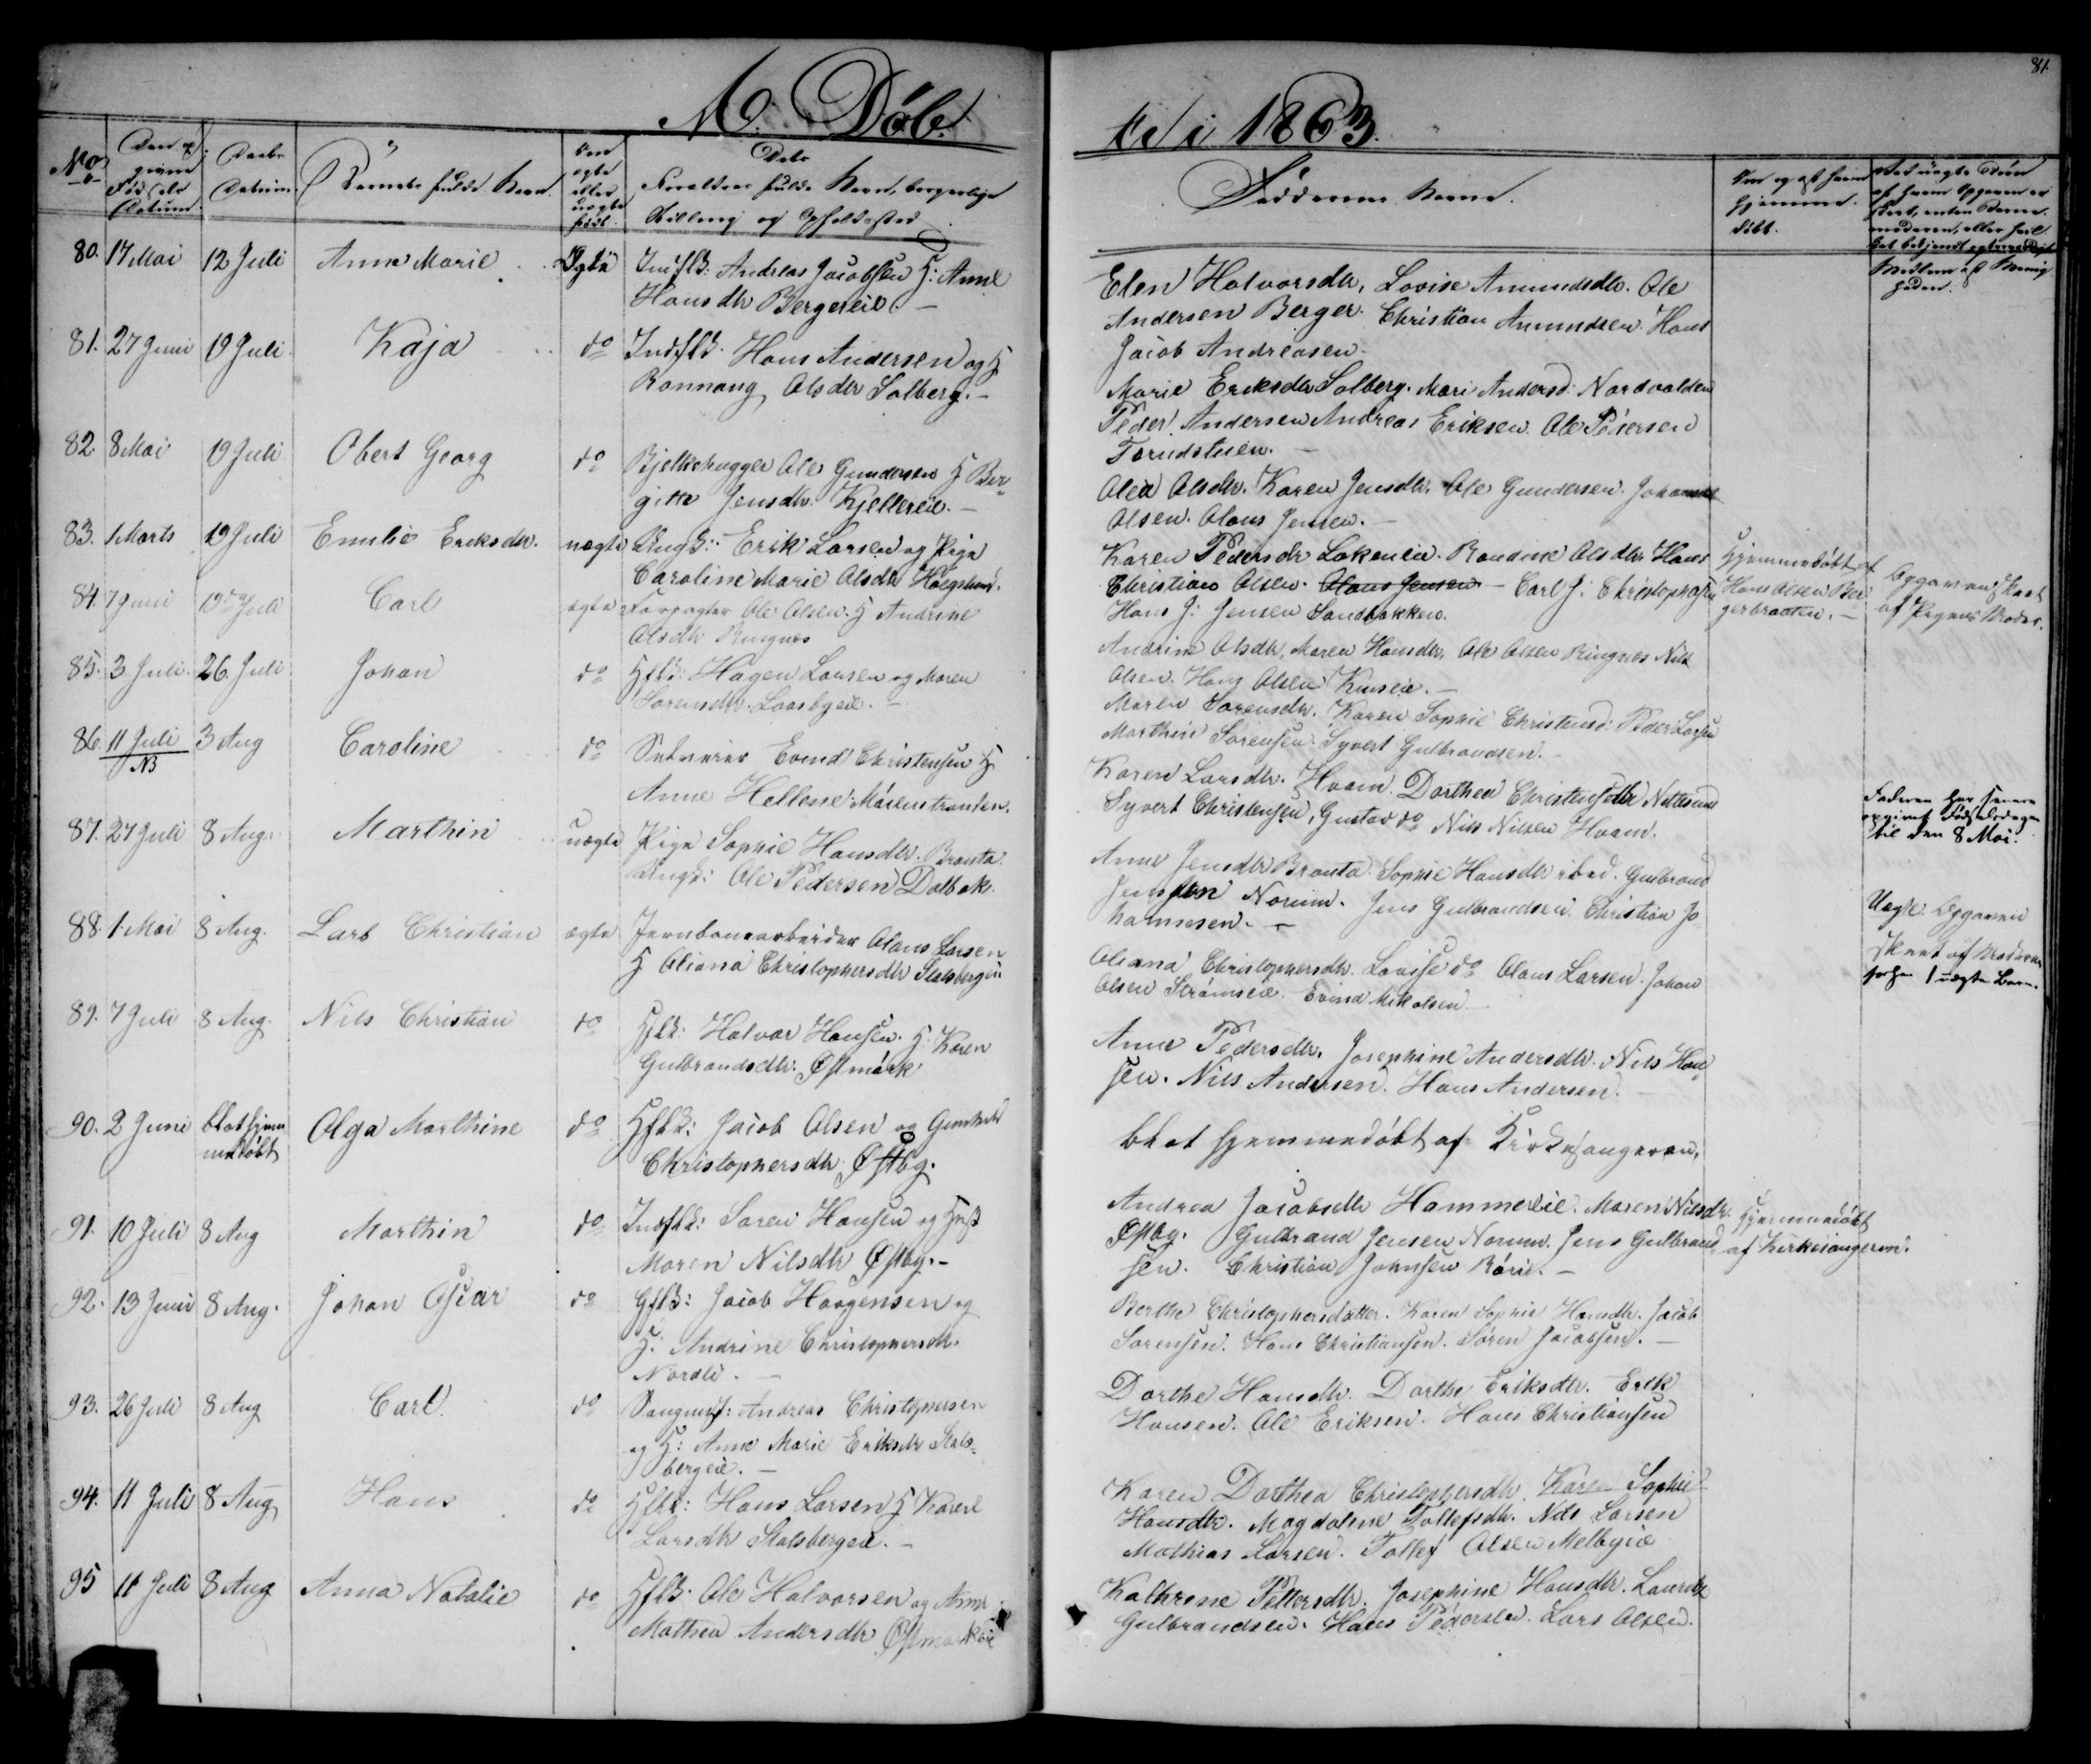 M. Døb
No
Barnets fulde Navn.
Forældres fulde Navn, borgerlige
Stilling og Opholdssted
80. 17 Mai 12 Juli Anne Marie Ægte Indslk: Andreas Jacobsen H: Anne
Hansdtr Bergereie. —
81. 27 Juni 19 Juli Kaja do Indslk. Hans Andersen og H
Ronnaug Olsdtr Solberg. —
82. 8 Mai 19 Juli Obert Georg do Bjelkehugger Ole Gundersen H Ber-
gitte Jensdtr. Kjellereie. —
83. 1 Marts 19 Juli Emilie Eriksdtr. uægte Ungk: Erik Larsen og Pige
Caroline Marie Olsdtr
84. 7 Juni 19de Juli Carl ægte Forpagter Ole Olsen. H Andrine
Olsdtr Ringnes
85. 3 Juli. 26. Juli Johan do Hflk: Hagen Larsen og Maren
Sorensdtr. Laasbyeie. —
86. 11 Juli 3 Aug Caroline do Evend Christensen H
NB
Anne Hellene
87. 27 Juli 8 Aug. Marthin uægte Pige Sophie Hansdtr. Branta
Ungk: Ole Pedersen Dalbak.
88. 1. Mai 8 Aug. Lars Christian ægte Jernbanearbeider Olaus Larsen
H Oliana Christophersdtr Stalsbergeie
89. 7 Juli 8 Aug. Nils Christian do Hflk: Halvor Hansen. H: Karen
Gulbrandsdtr: Østmark
90. 2 Juni blot hjem Olga Marthine do Hflk: Jacob Olsen og Gunhild
medøbt
Christophersdtr Østbg.
91. 10 Juli 8 Aug Marthin do Indslk: Soren Hansen og Hust
Maren Nilsdtr Østbg. —
92. 13 Juni 8 Aug. Johan Oscar do Gflk: Jacob Haagensen og
H: Andrine Christophersdtr.
Nordli. —
93. 26 Juli 8 Aug Carl. do Andreas Christophersen
og H: Anne Marie Eriksdtr Stals-
bergeie. —
94. 11 Juli 8 Aug Hans do Hflk: Hans Larsen H Karen
Larsdtr Stalsbergeie. —
95 11 Juli 8 Aug Anna Natalie do Hflk. Ole Halvorsen og Anne
Mathea Andersdtr Østmarkeie
81.
te i 1863.
Faddernes Navne.
Hvor og af hvem
hjemme-
døbt.
Ved uægte Børn
af hvem Opgaven er
skeet, enten Barne-
moderen, eller hvil
Medlem af Menig
heden.
Elen Halvorsdtr, Lovise Amundsdtr. Ole
Andersen Berger. Christian Amundsen. Hans
Jacob Andreasen —
Marie Eriksdtr Solberg. Mari Andersd: Nordvolden
Peder Andersen Andreas Eriksen. Ole Pedersen
Torudstuen. —
Olea Olsdtr. Karen Jensdtr. Ole Gundersen. Johannes
Olsen. Olaus Jensen. —
Karen Pedersdtr Lokeneie. Randine Olsdtr Hans
Christian Olsen. Olaus Jensen — Carl J: Christophersen
Hans J: Jensen Sandbakken.
Hjemmedøbt af
Hans Olsen Ber
gerbraaten. —
Opgaven skeet
af Pigens Moder.
Andrine Olsdtr, Maren Hansdtr. Ole Olsen Ringnes Nils
Olsen. Hans Olsen —
Maren Sorensdtr. Karen Sophie Christensd: Peder Larsen
Marthin Sorensen. Syvert Gulbrandsen. —
Karen Larsdtr. Hvam. Dorthea Christensdtr
Syvert Christensen, Gustav do Nils Nilsen Hvam.
Faderen har senere
opgivet Fødselsdagen
til den 8 Mai.
Anne Jensdtr Branta. Sophie Hansdtr ibid. Gulbrand
Jensen Norum. Jens Gulbrandsen. Christian Jo
hannesen. —
Uægte. Opgaven
skeet af Moderen
1 uægte Barn.
Oliana Christophersdtr. Lovisse do Olaus Larsen. Johan
Olsen Strømseie. Evind Mikalsen —
Anne Pedersdtr. Josephine Andersdtr. Nils Han
sen. Nils Andersen. Hans Andersen. —
blot hjemmedøbt af Kirkesangeren.
Andrea Jacobsdtr Hammereie. Maren Nilsdtr.
Østbg. Gulbrand Jensen Norum. Jens Gulbrand
sen. Christian Johnsen —
Hjemmedøbt
af Kirkesangeren.
Berthe Christophersdatter. Karen Sophie Hansdtr. Jacob
Sorensen. Hans Christiansen. Søren Jacobsen. —
Dorthe Hansdtr. Dorthe Eriksdtr. Erik
Hansen. Ole Eriksen. Hans Christiansen
Karen Dorthea Christophersdtr. Karen Sophie
Hansdtr. Magdalene Tollefsdtr. Nils Larsen
Mathias Larsen. Tollef Olsen Melbyeie
Kathrine Pettersdtr. Josephine Hansdtr. Lauritz
Gulbrandsen. Hans Pedersen. Lars Olsen.